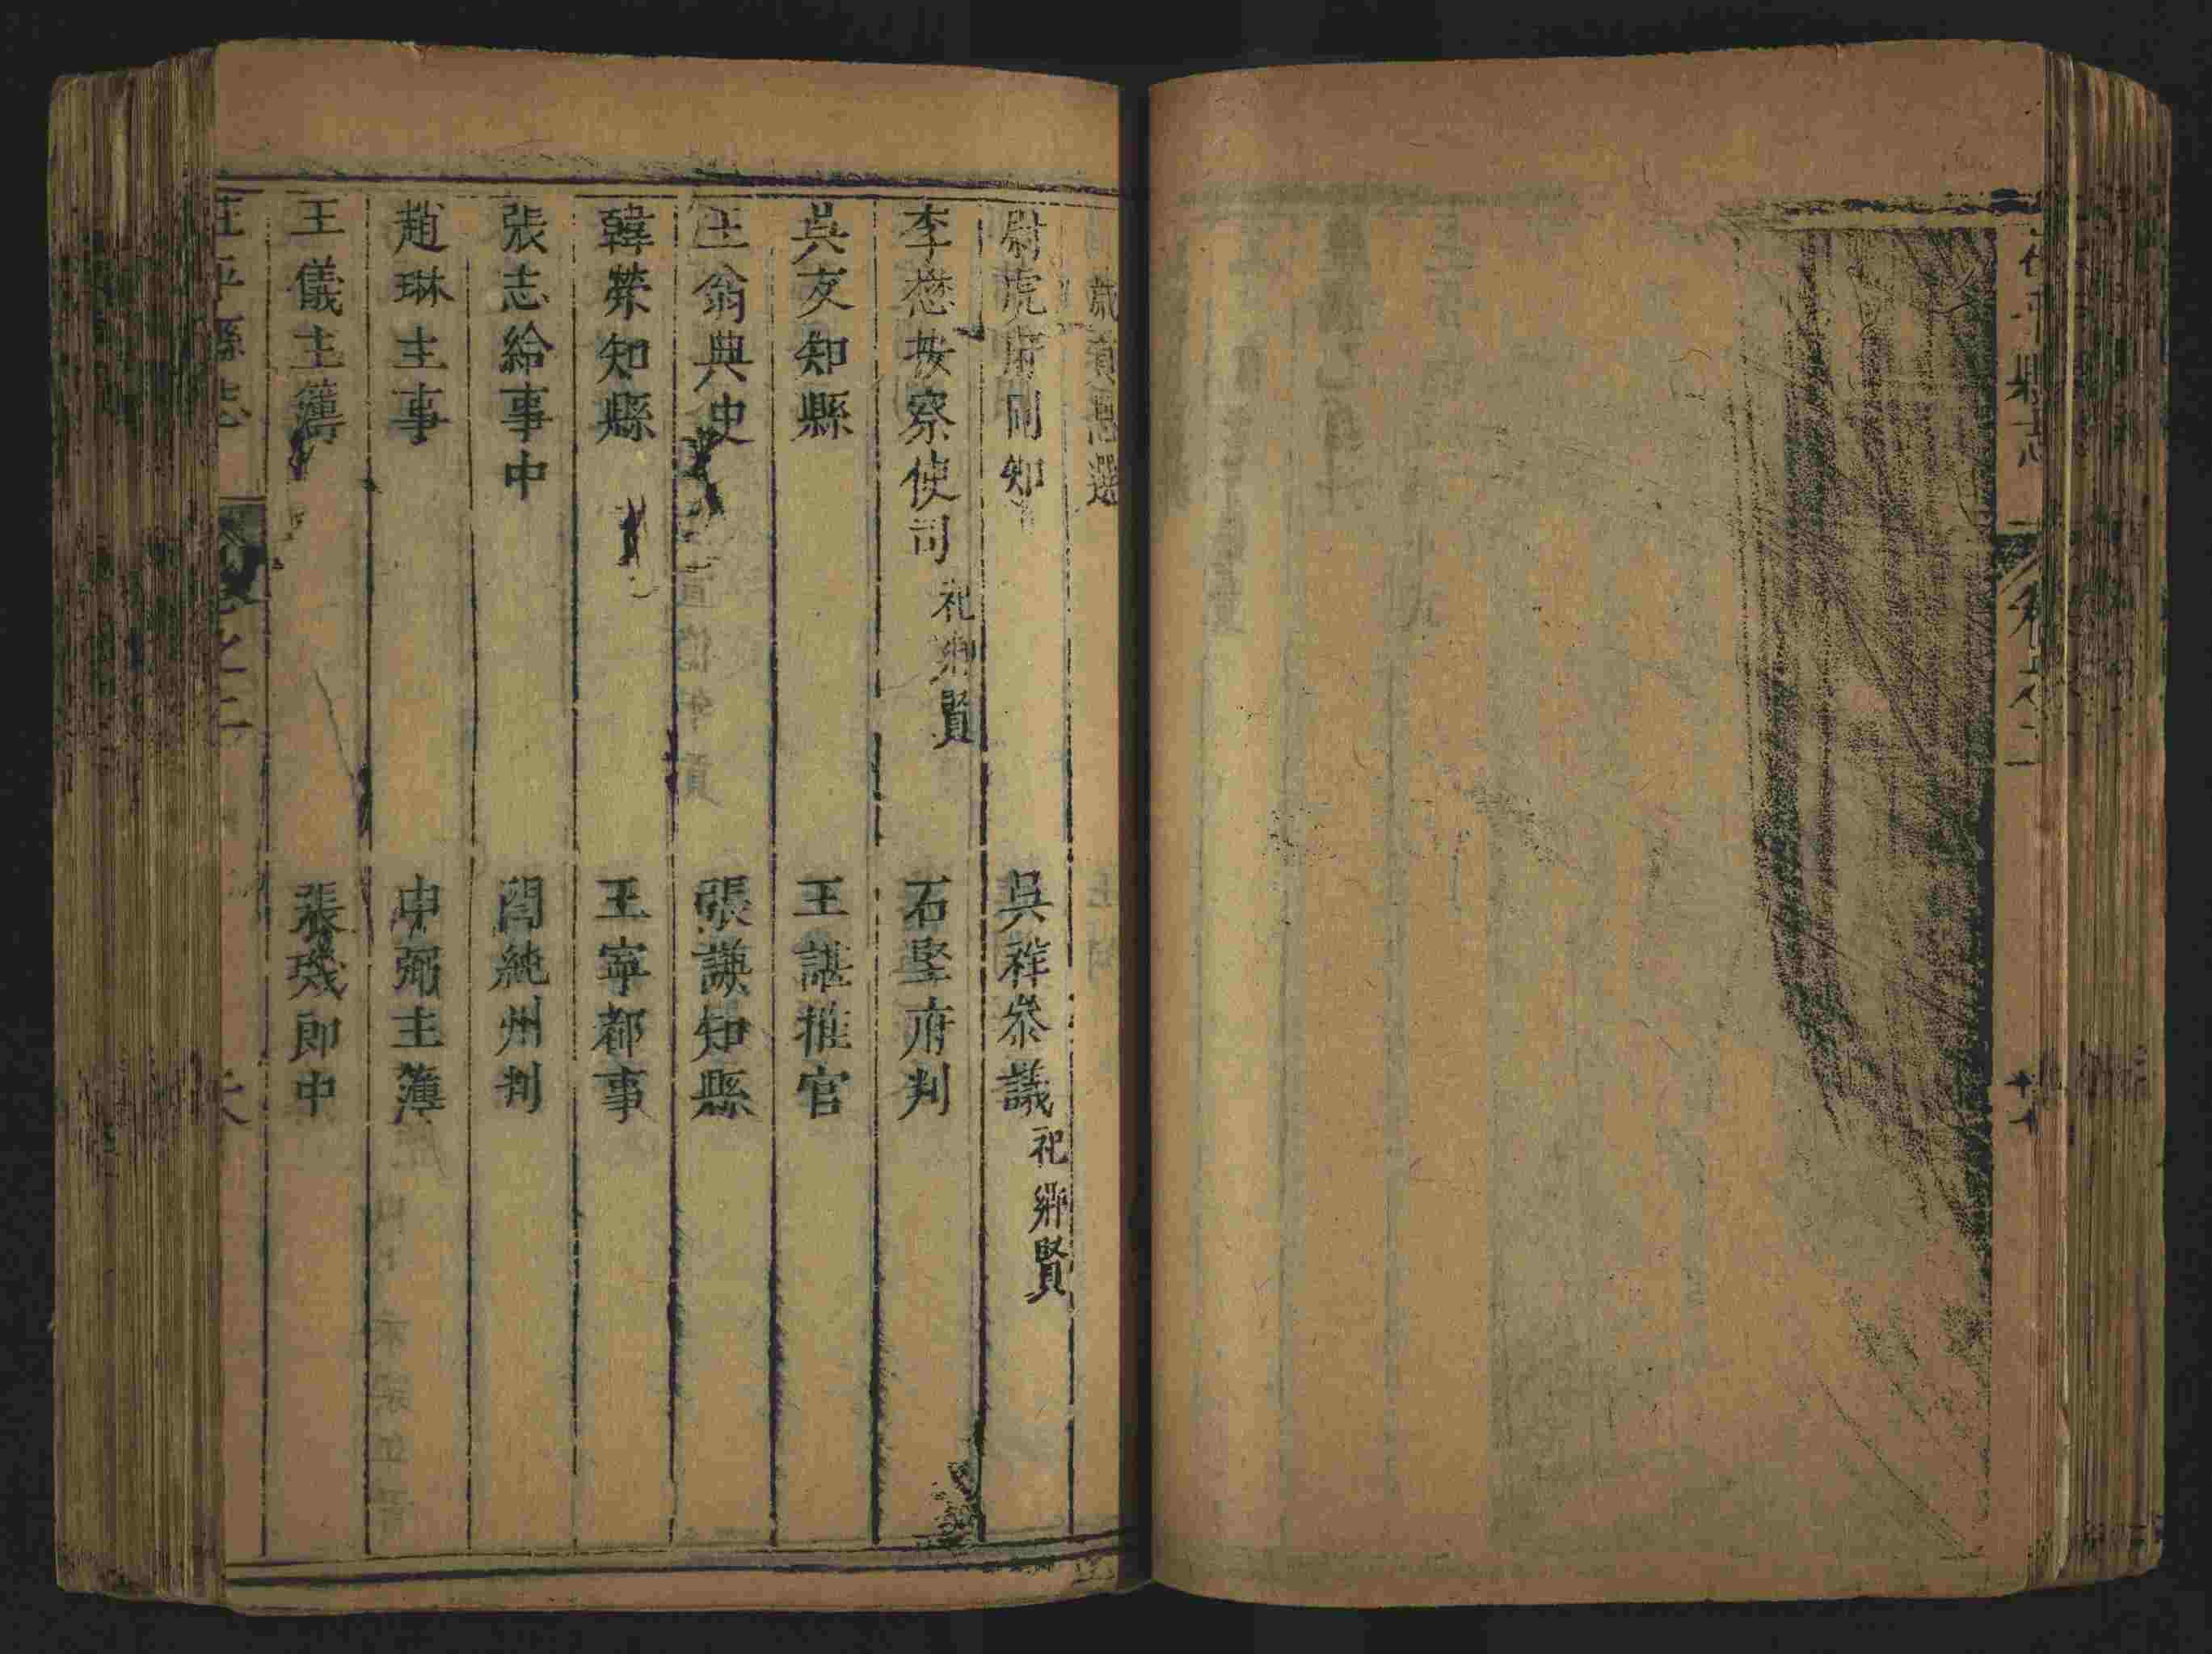 歲貢應選
尉虎府同知
吳祥叅議祀鄉賢
李懋按察使司祀鄉賢
石堅府判
吳友知縣
王諶推官
王翁典史
張謙知縣
韓榮知縣
王寧都事
張志給事中
閻純州判
趙琳主事
申弼主簿
王儀主簿
張璣郎中
茌平縣志
卷之二